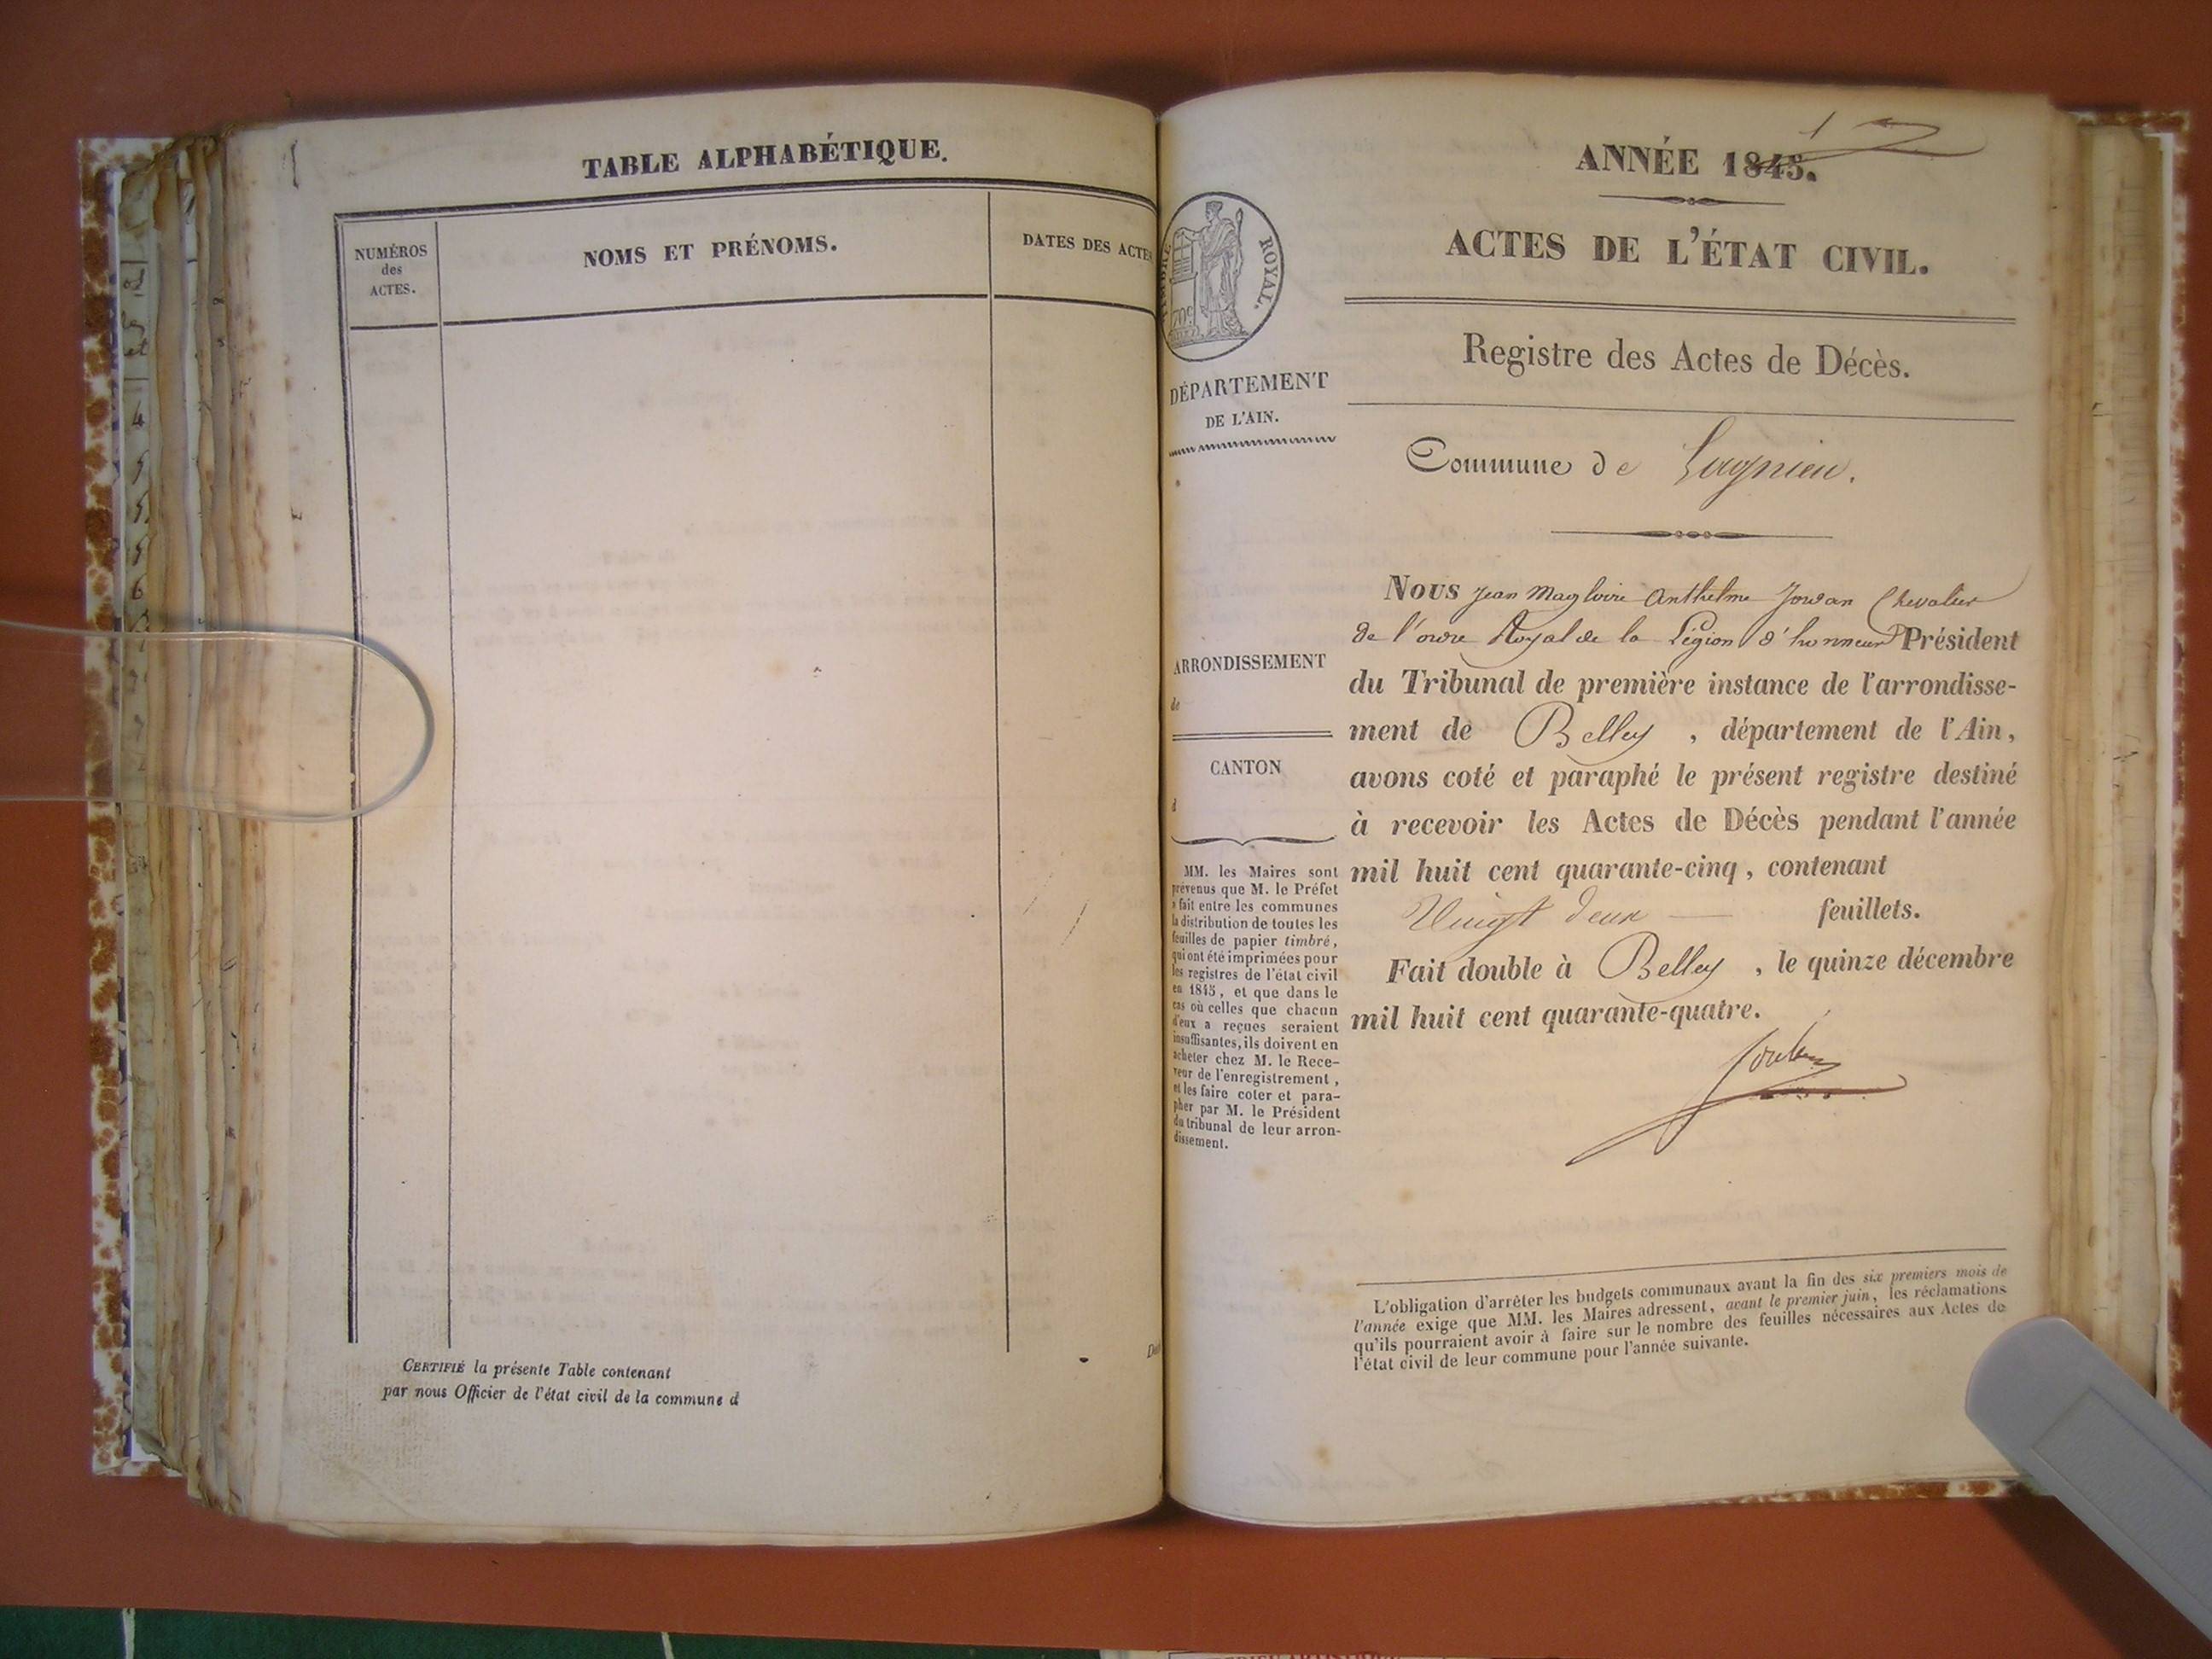 TABLE ALPHABÉTIQUE.
NUMÉROS
des
ACTES.
NOMS ET PRÉNOMS.
DATES DES ACTES
CERTIFIÉ la présente Table contenant
par nous Officier de l'état civil de la commune d
1
ANNÉE 1845.
ACTES DE L'ÉTAT CIVIL.
TIMBRE ROYAL.
70c
DÉPARTEMENT
DE L'AIN.
Registre des Actes de Décès.
Commune de Lagnieu.
Nous Jean Magloire Anthelme Chevalier
de l'ordre Royal de la Légion d'honneur Président
du Tribunal de première instance de l'arrondisse-
ment de Belley, département de l'Ain,
avons coté et paraphé le présent registre destiné
à recevoir les Actes de Décès pendant l'année
mil huit cent quarante-cinq, contenant
Vingt deux feuillets.
Fait double à Belley, le quinze décembre
mil huit cent quarante-quatre.
ARRONDISSEMENT
de
CANTON
d
MM. les Maires sont
prévenus que M. le Préfet
a fait entre les communes
la distribution de toutes les
feuilles de papier timbré,
qui ont été imprimées pour
les registres de l'état civil
en 1845, et que dans le
cas où celles que chacun
d'eux a reçues seraient
insuffisantes, ils doivent en
acheter chez M. le Rece-
veur de l'enregistrement,
et les faire coter et para-
pher par M. le Président
du tribunal de leur arron-
dissement.
L'obligation d'arrêter les budgets communaux avant la fin des six premiers mois de
l'année exige que MM. les Maires adressent, avant le premier juin, les réclamations
qu'ils pourraient avoir à faire sur le nombre des feuilles nécessaires aux Actes de
l'état civil de leur commune pour l'année suivante.